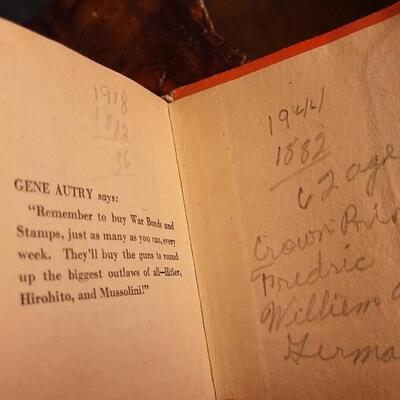 1918
1882
36
GENE AUTRY says:
"Remember to buy War Bonds and
Stamps, just as many as you can, every
week. They'll buy the guns to round
up the biggest outlaws of all—Hitler,
Hirohito, and Mussolini!"
1944
1882
62 age
Crown Prin
Fredric
William
Germa